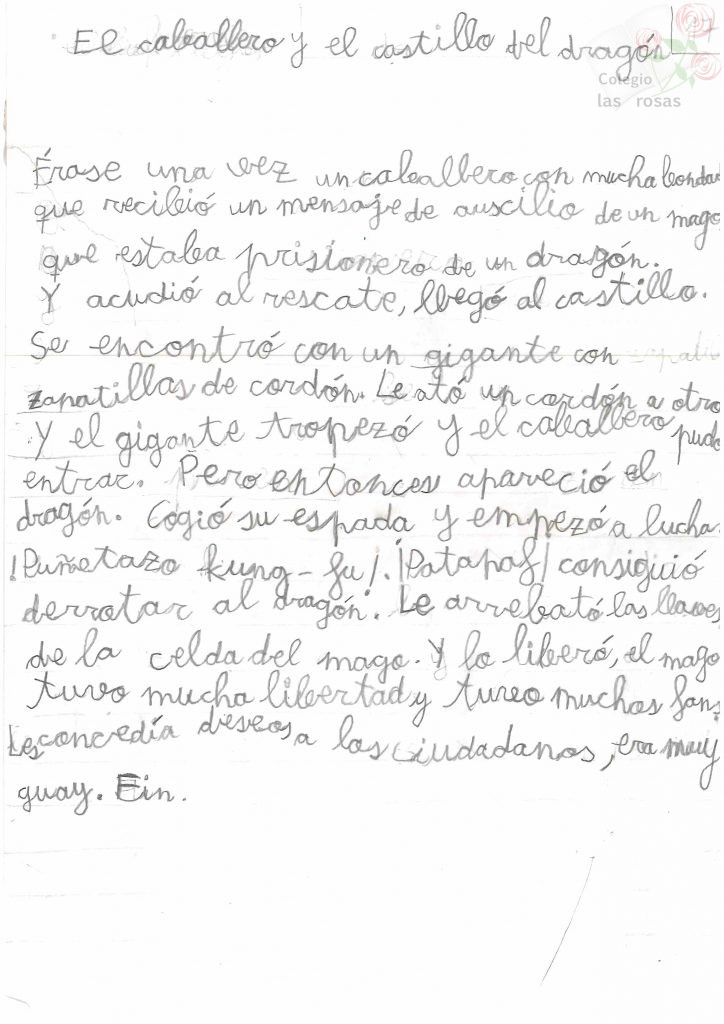 El caballero y el castillo del dragón
Colegio
las rosas
Érase una vez un caballero con mucha bondad
que recibió un mensaje de auscilio de un mago
que estaba prisionero de un dragón.
Y acudió al rescate, llegó al castillo.
Se encontró con un gigante con
zapatillas de cordón. Le ató un cordón a otro
Y el gigante tropezó y el caballero pudo
entrar. Pero entonces apareció el
dragón. Cogió su espada y empezó a lucha
¡Puñetazo kung-fu!. ¡Patapaf! consiguió
derrotar al dragón. Le arrebató las llaves
de la celda del mago. Y lo liberó, el mago
tuvo mucha libertad y tuvo muchos fans
Les concedía deseos a los ciudadanos, era muy
guay. Fin.